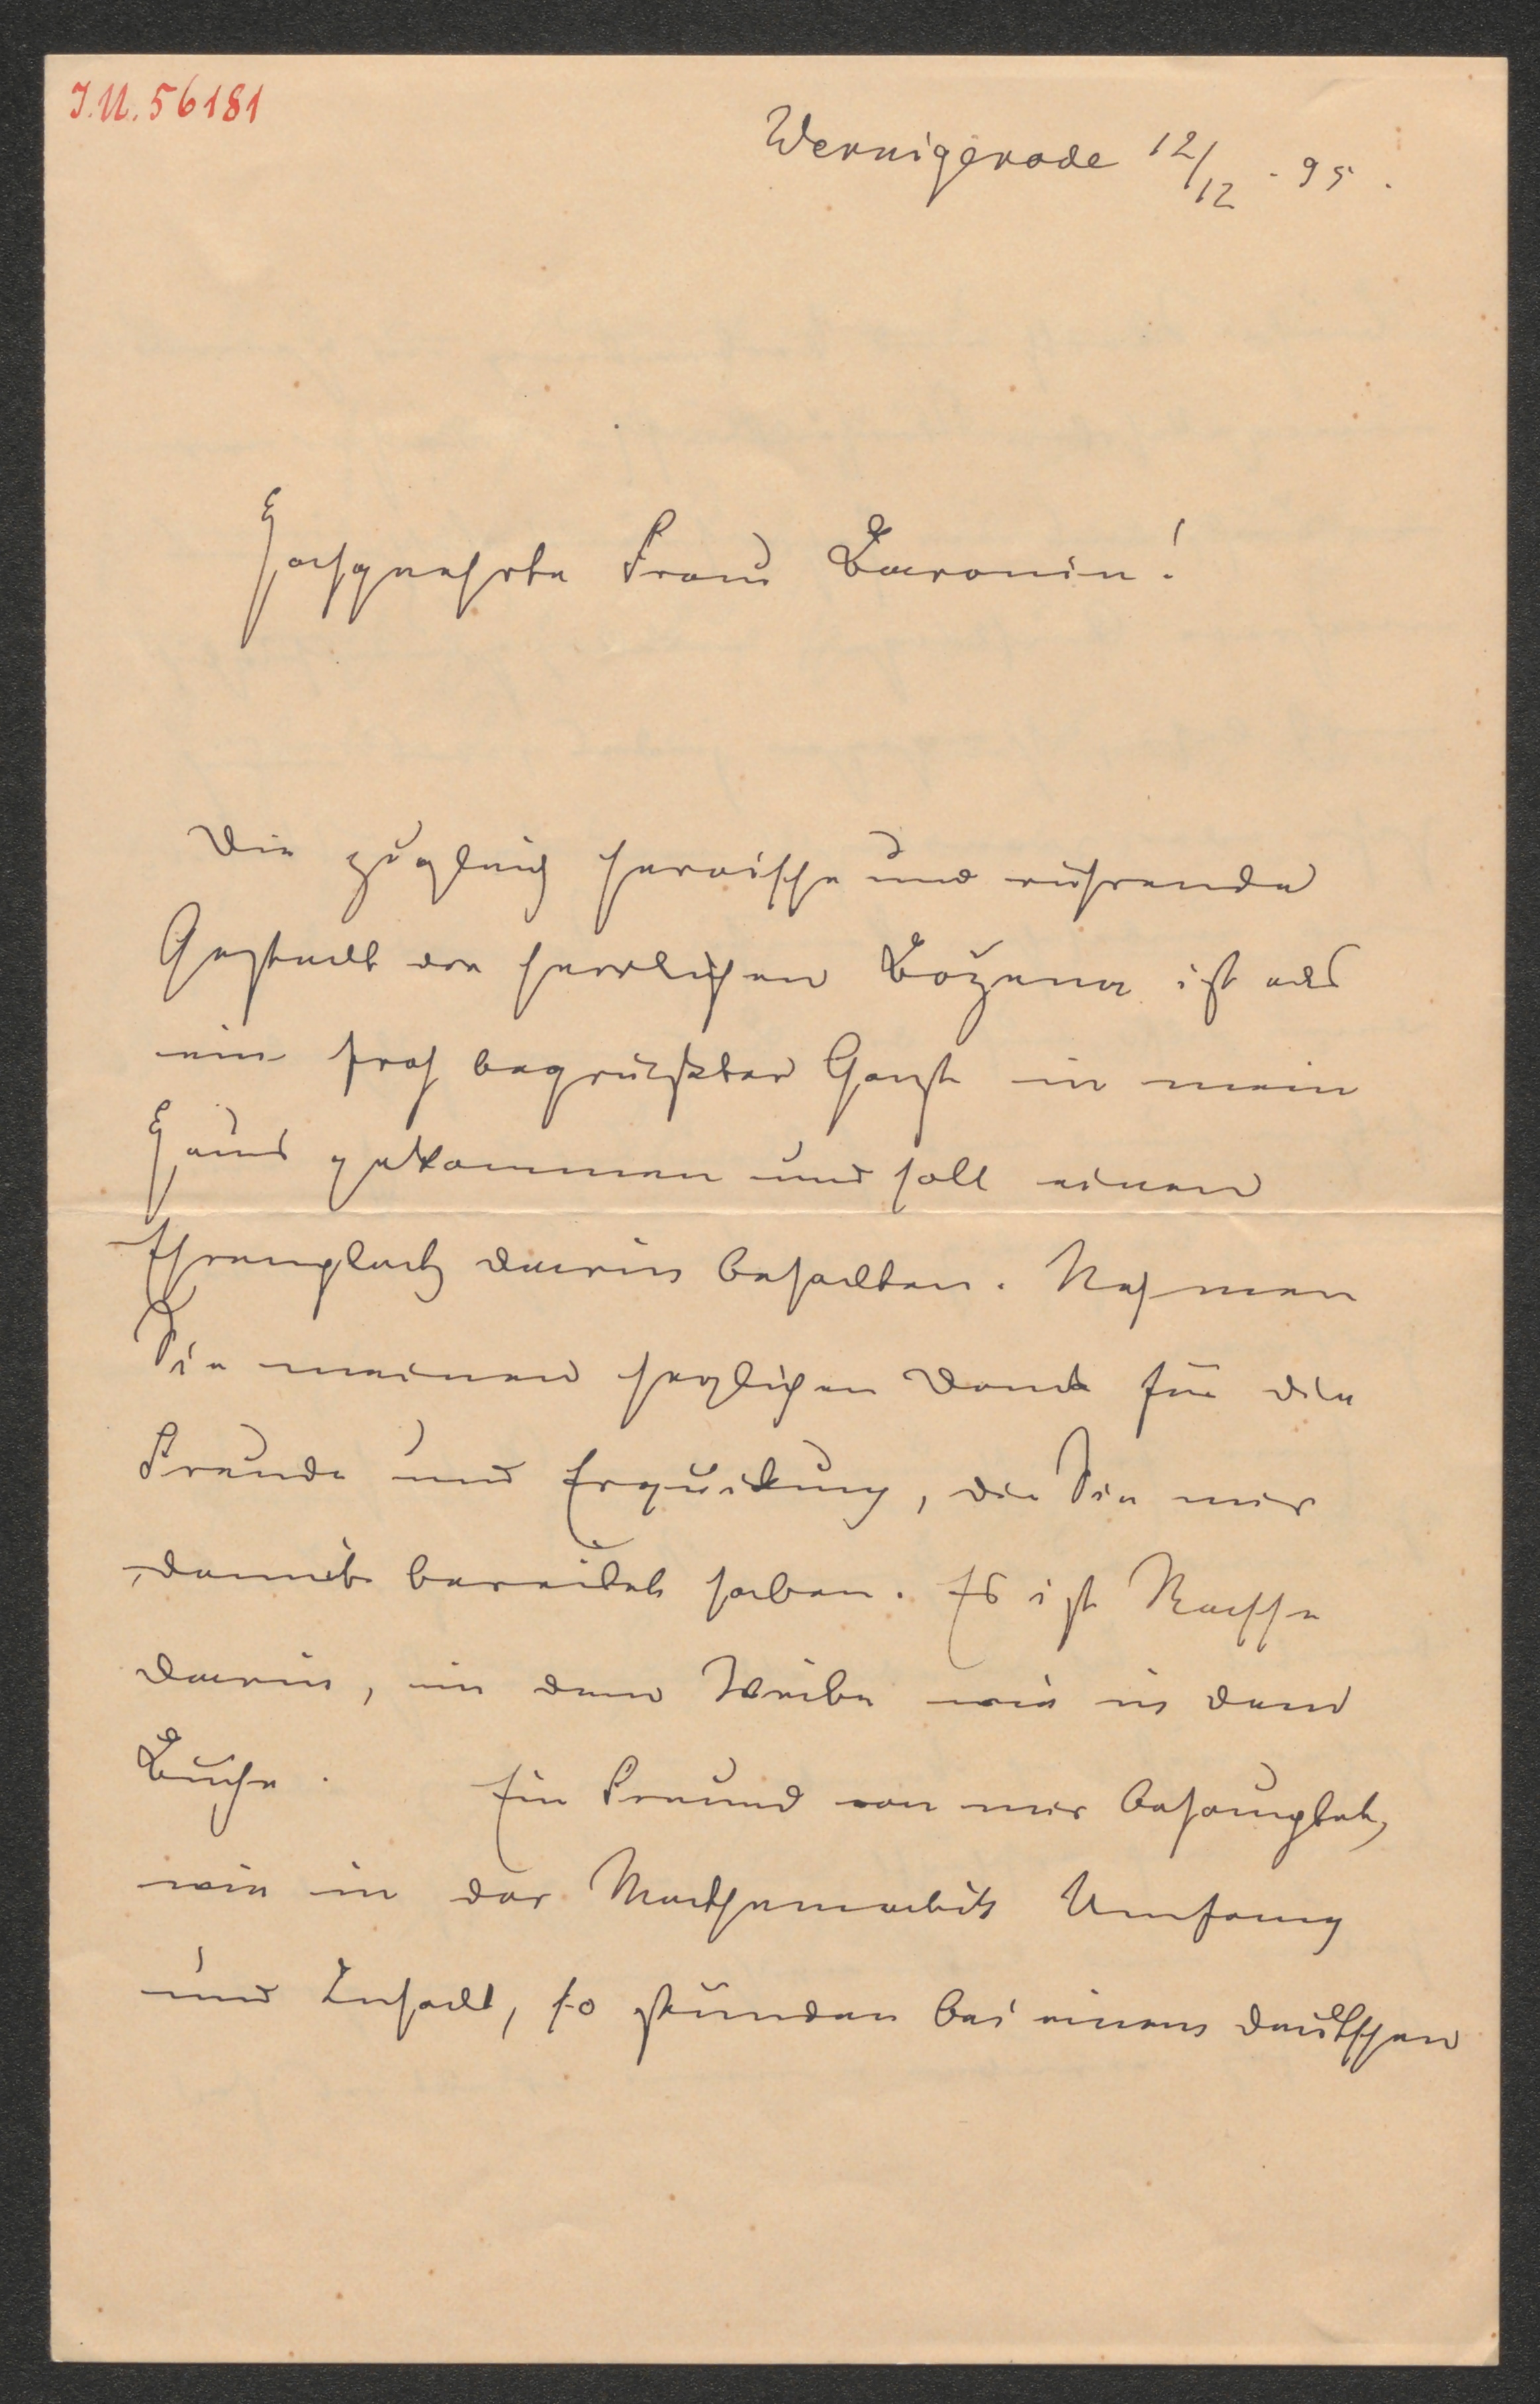 J.N. 56181
Wernigerode 12/12. 95.
Hochgeehrte Frau Baronin!
Die zugleich heroische und rührende
Gestalt der herrlichen Božena ist als
ein froh begrüßter Gast in mein
Haus gekommen und soll einen
Ehrenplatz darin behalten. Nehmen
Sie meinen herzlichen Dank für die
Freude und Erquickung, die Sie mir
damit bereitet haben. Es ist Rasse
darin, in dem Weibe wie in dem
Buche. Ein Freund von mir behauptet,
wie in der Mathematik Umfang
und Inhalt, so stünden bei einem deutschen